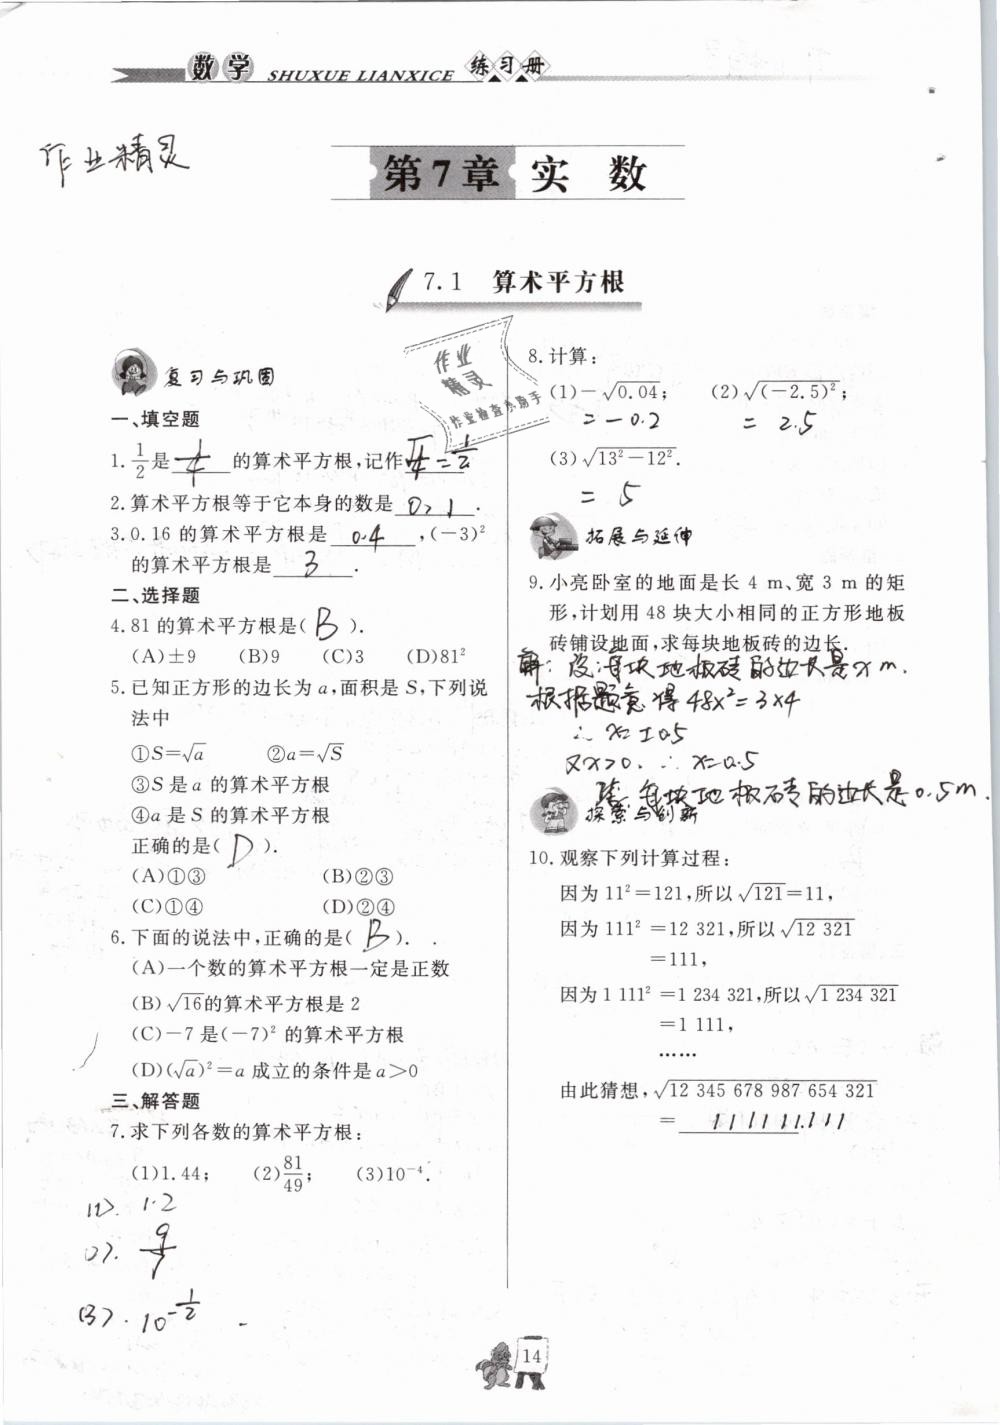 数学 SHUXUE LIANXICE 练习册
作业精灵
第7章 实数
7.1 算术平方根
作业
精灵
作业检查小助手
复习与巩固
一、填空题
1. 1/2是 1/4 的算术平方根,记作 √1/4=1/2
2.算术平方根等于它本身的数是 0,1 .
3.0.16 的算术平方根是 0.4 ,(-3)²
的算术平方根是 3 .
二、选择题
4.81 的算术平方根是( B ).
(A)±9 (B)9 (C)3 (D)81²
5.已知正方形的边长为 a,面积是 S,下列说
法中
①S=√a ②a=√S
③S 是 a 的算术平方根
④a 是 S 的算术平方根
正确的是( D ).
(A)①③ (B)②③
(C)①④ (D)②④
6.下面的说法中,正确的是( B ).
(A)一个数的算术平方根一定是正数
(B)√16的算术平方根是 2
(C)-7 是(-7)² 的算术平方根
(D)(√a)²=a 成立的条件是 a>0
三、解答题
7.求下列各数的算术平方根:
(1)1.44; (2)81/49; (3)10⁻⁴.
(1). 1.2
(2). 9/7
(3). 10^-1/2
8.计算:
(1)-√0.04; (2)√(-2.5)²;
=-0.2 = 2.5
(3)√13²-12².
= 5
拓展与延伸
9.小亮卧室的地面是长 4 m、宽 3 m 的矩
形,计划用 48 块大小相同的正方形地板
砖铺设地面,求每块地板砖的边长.
解:设每块地板砖的边长是x m.
根据题意得 48x²=3×4
∴ x=±0.5
又x>0. ∴ x=0.5
每块地板砖的边长是0.5m.
探索与创新
10.观察下列计算过程:
因为 11²=121,所以√121=11,
因为 111²=12 321,所以√12 321
=111,
因为 1 111²=1 234 321,所以√1 234 321
=1 111,
……
由此猜想,√12 345 678 987 654 321
= 111111111
14